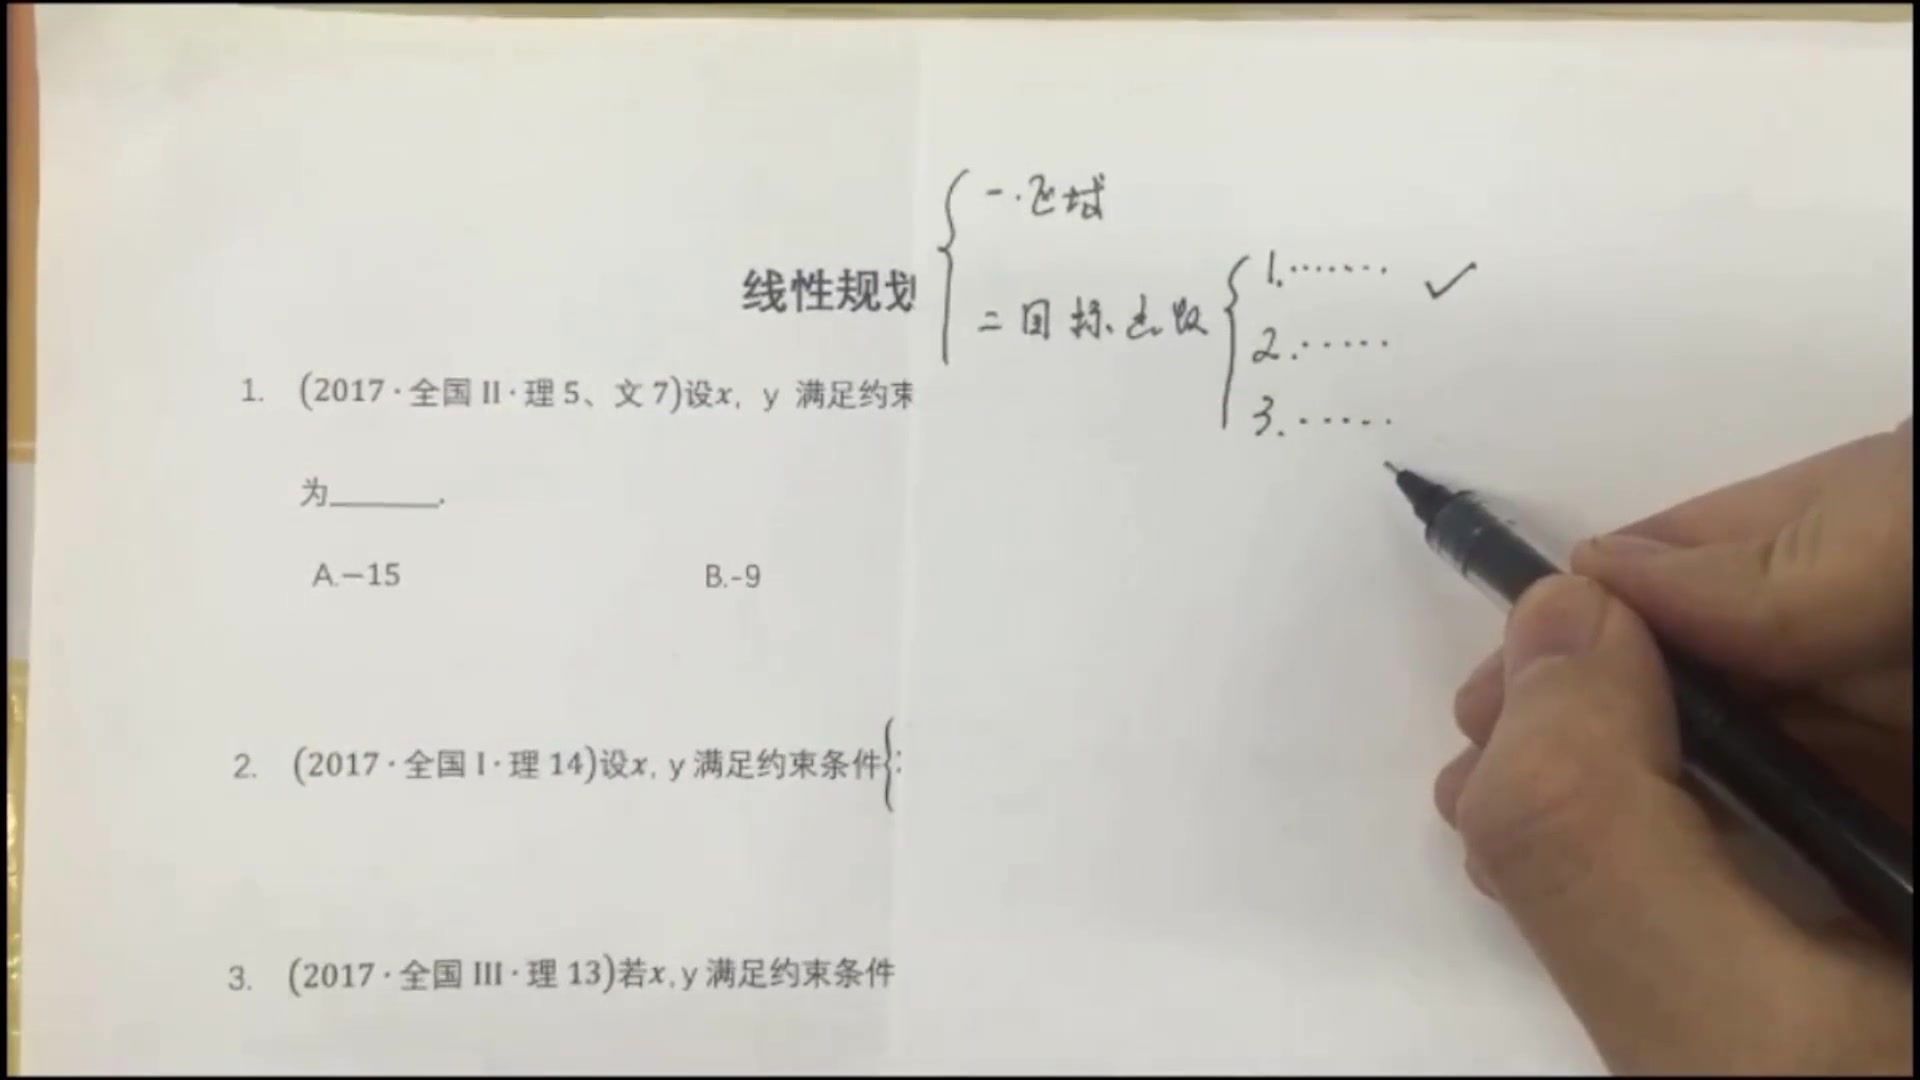 一.区域
线性规划
二目标函数
1.·······
2.·····
3.·····
1. (2017·全国 II·理 5、文 7)设x, y 满足约束
为______.
A.−15 B.-9
2. (2017·全国 I·理 14)设x, y 满足约束条件{
3. (2017·全国 III·理 13)若x, y 满足约束条件